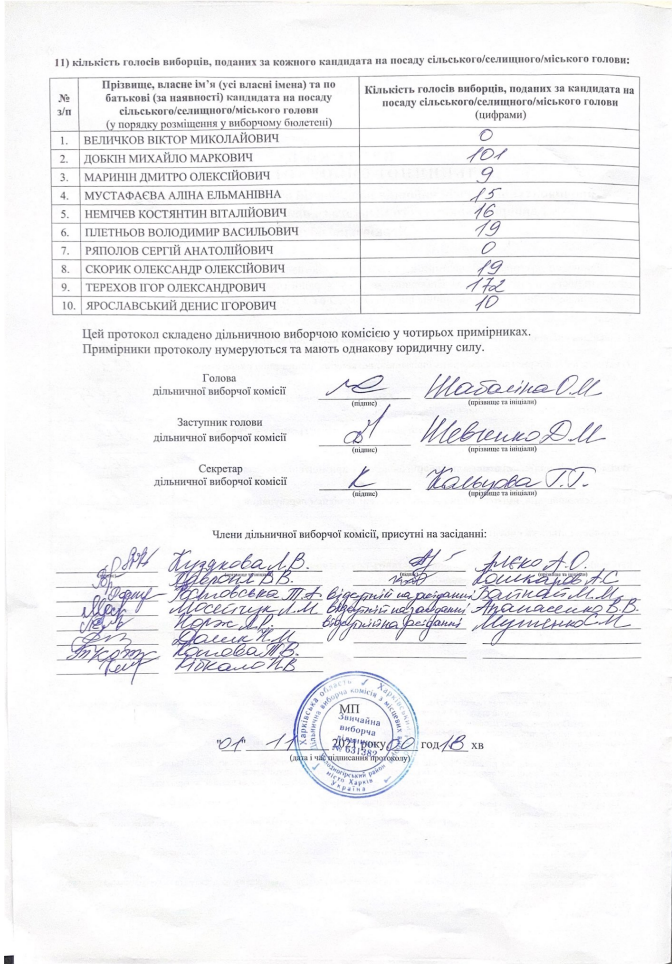 11) кількість голосів виборців, поданих за кожного кандидата на посаду сільського/селищного/міського голови:
№ з/п
Прізвище, власне ім’я (усі власні імена) та по батькові (за наявності) кандидата на посаду сільського/селищного/міського голови (у порядку розміщення у виборчому бюлетені)
Кількість голосів виборців, поданих за кандидата на посаду сільського/селищного/міського голови (цифрами)
1. ВЕЛИЧКОВ ВІКТОР МИКОЛАЙОВИЧ 0
2. ДОБКІН МИХАЙЛО МАРКОВИЧ 101
3. МАРИНІН ДМИТРО ОЛЕКСІЙОВИЧ 9
4. МУСТАФАЄВА АЛІНА ЕЛЬМАНІВНА 15
5. НЕМІЧЕВ КОСТЯНТИН ВІТАЛІЙОВИЧ 16
6. ПЛЕТНЬОВ ВОЛОДИМИР ВАСИЛЬОВИЧ 19
7. РЯПОЛОВ СЕРГІЙ АНАТОЛІЙОВИЧ 0
8. СКОРИК ОЛЕКСАНДР ОЛЕКСІЙОВИЧ 19
9. ТЕРЕХОВ ІГОР ОЛЕКСАНДРОВИЧ 172
10. ЯРОСЛАВСЬКИЙ ДЕНИС ІГОРОВИЧ 10
Цей протокол складено дільничною виборчою комісією у чотирьох примірниках.
Примірники протоколу нумеруються та мають однакову юридичну силу.
Голова
дільничної виборчої комісії Шабаліна О.М
(підпис) (прізвище та ініціали)
Заступник голови
дільничної виборчої комісії Шевченко Д.М
(підпис) (прізвище та ініціали)
Секретар
дільничної виборчої комісії Кольцова Г.Г.
(підпис) (прізвище та ініціали)
Члени дільничної виборчої комісії, присутні на засіданні:
А.О.
В.В. Кошкаров А.С
Т.А. відсутній на засіданні М.М.
Мосейчук Л.М відсутній на засіданні Апанасенко В.В.
Корж відсутній на засіданні
Далик Н.М
Котова Т.В.
МП
"01" 11 2021 року 00 год 18 хв
(дата і час підписання протоколу)
Харківська область
Дільнична виборча комісія з місцевих
Звичайна
виборча
дільниця
№ 631382
місто Харків
Україна